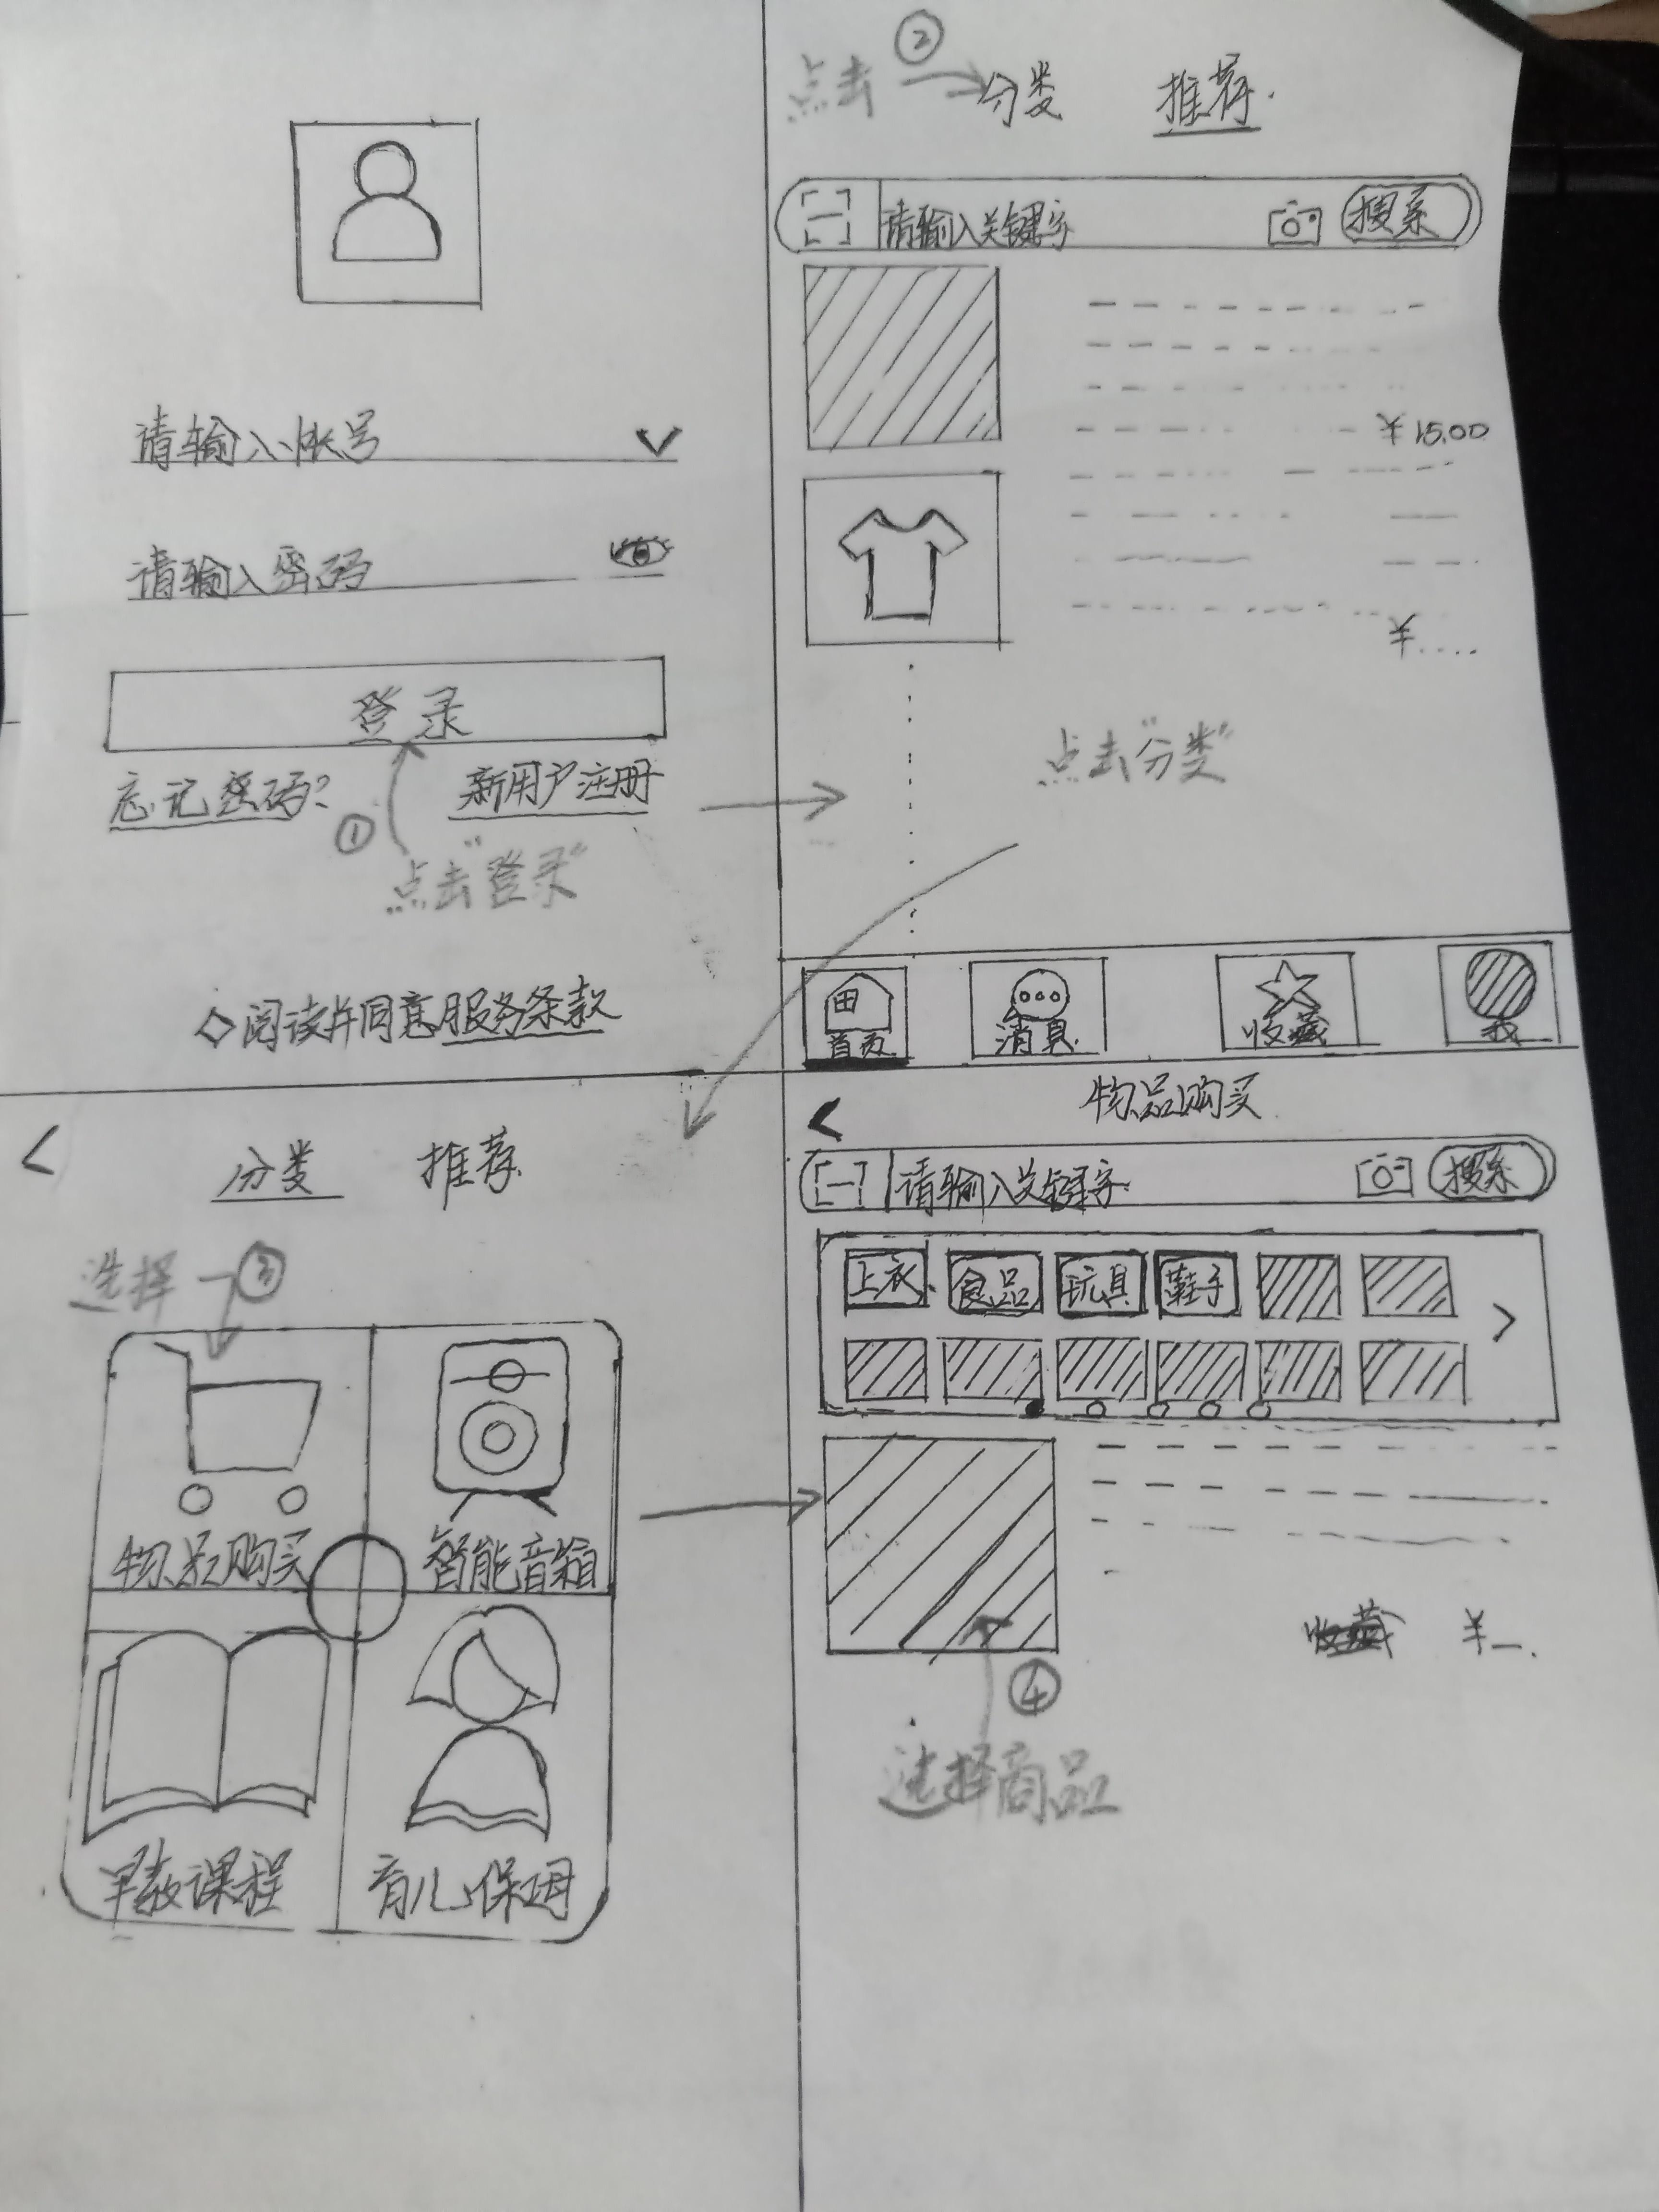 请输入帐号
请输入密码
登录
忘记密码?
新用户注册
①
点击"登录"
阅读并同意服务条款
②
点击
分类 推荐.
请输入关键字
搜索
¥15.00
¥....
点击"分类"
首页
消息
收藏
我
< 分类 推荐
选择
③
物品购买
智能音箱
早教课程
育儿保姆
< 物品购买
请输入关键字
搜索
上衣
食品
玩具
鞋子
>
收藏 ¥—.
④
选择商品